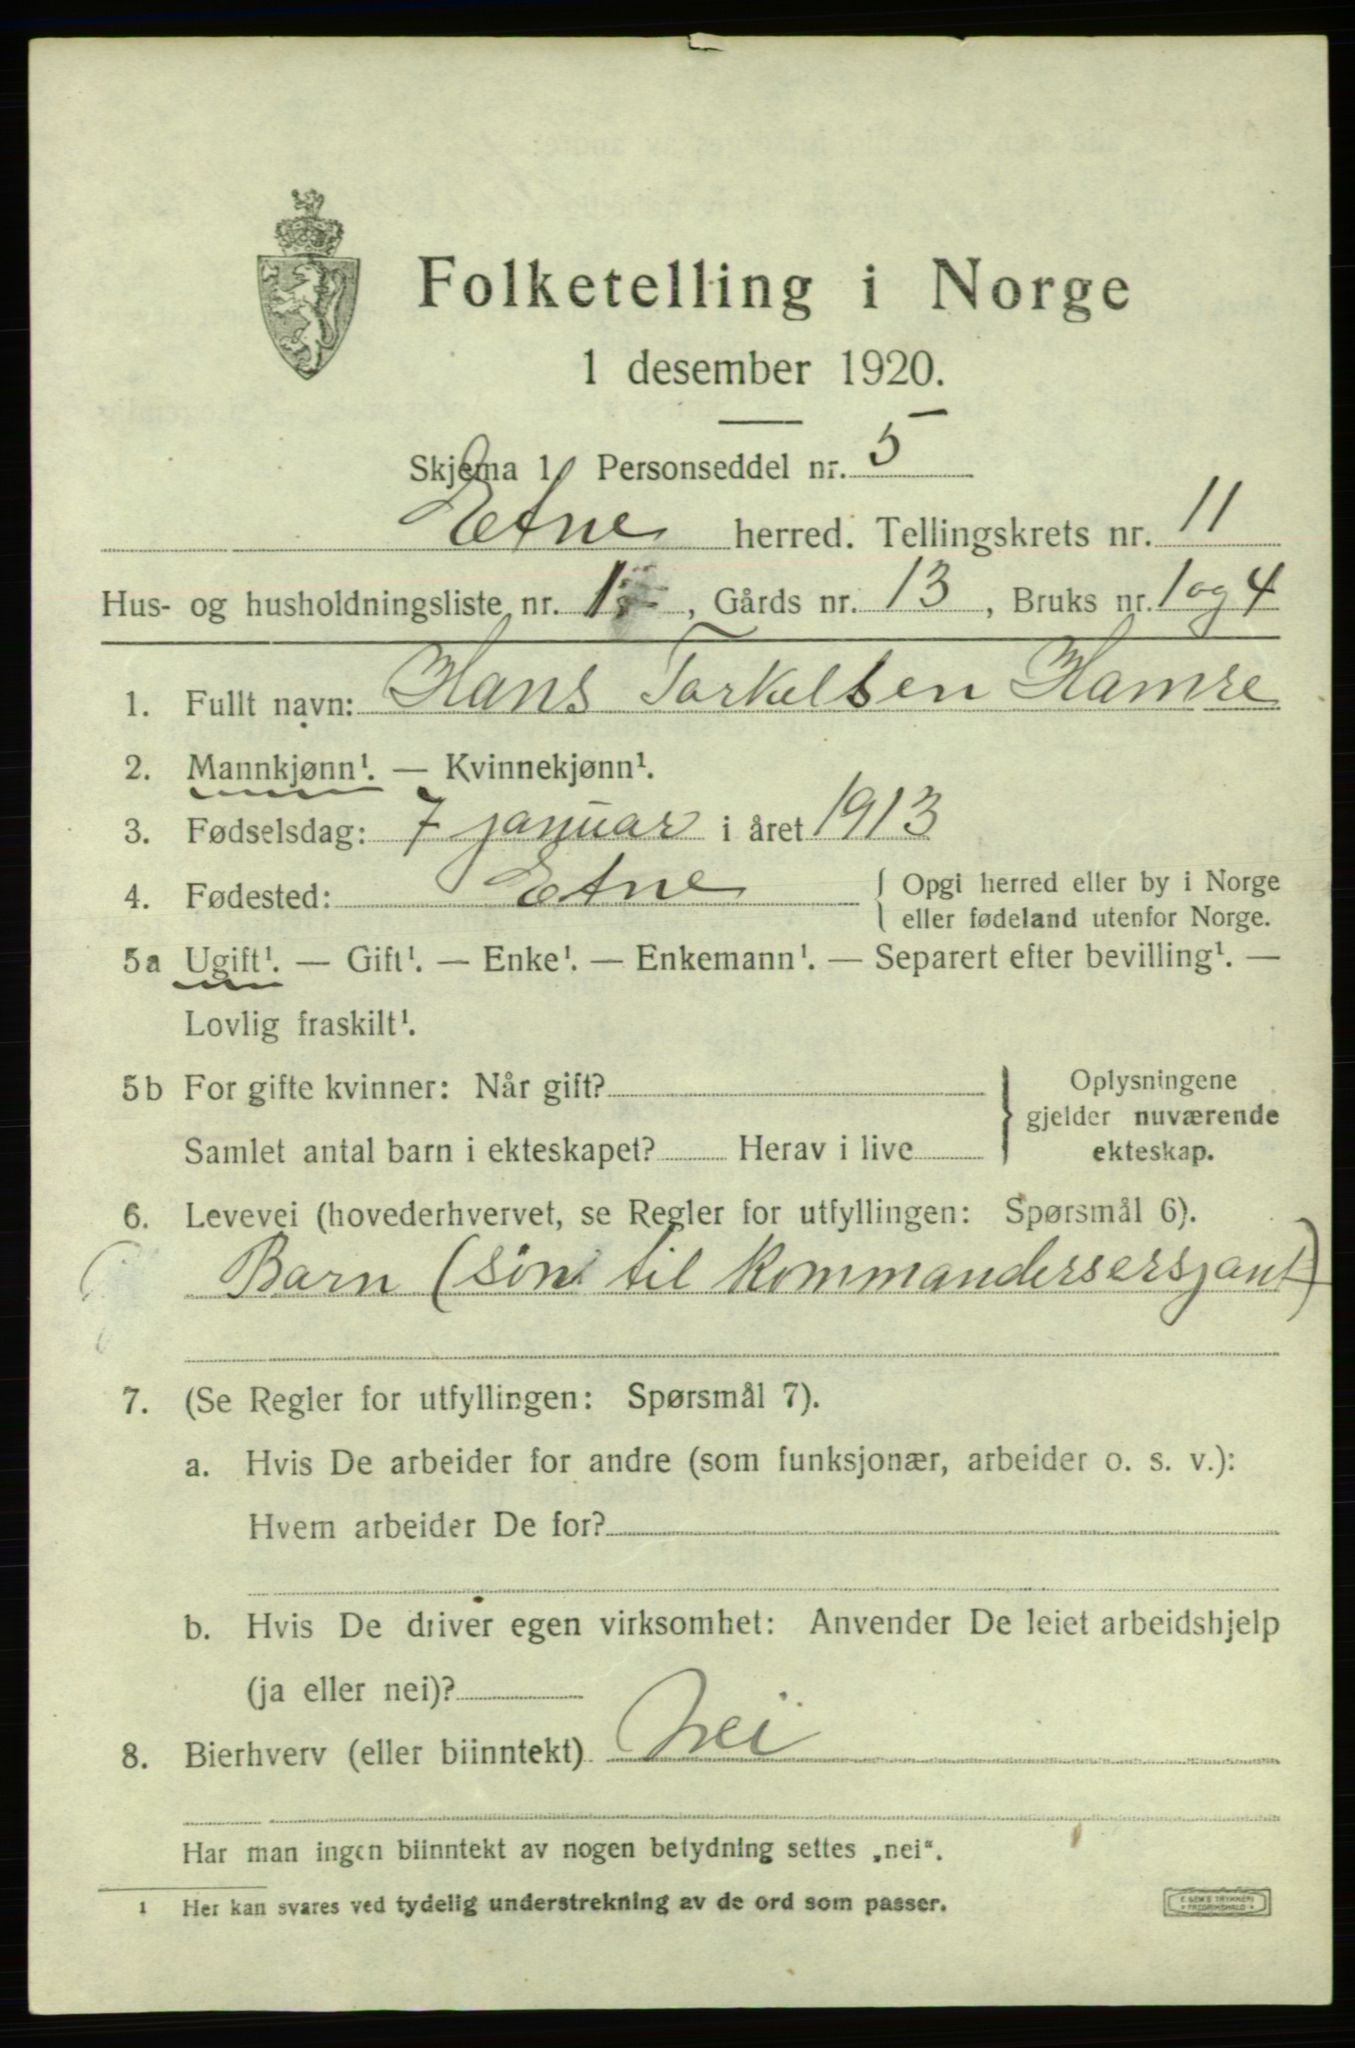 Folketelling i Norge
1 desember 1920.
Skjema 1 Personseddel nr. 5
Etne herred. Tellingskrets nr. 11
Hus- og husholdningsliste nr. 1, Gårds nr. 13, Bruks nr. 1 og 4
1. Fullt navn: Hans Torkelsen Hamre
2. Mannkjønn¹. — Kvinnekjønn¹.
3. Fødselsdag: 7 januar i året 1913
4. Fødested: Etne { Opgi herred eller by i Norge
eller fødeland utenfor Norge.
5a Ugift¹. — Gift¹. — Enke¹. — Enkemann¹. — Separert efter bevilling¹. —
Lovlig fraskilt¹.
5b For gifte kvinner: Når gift? } Oplysningene
gjelder nuværende
Samlet antal barn i ekteskapet? Herav i live ekteskap.
6. Levevei (hovederhvervet, se Regler for utfyllingen: Spørsmål 6).
Barn (søn til kommandersersjant)
7. (Se Regler for utfyllingen: Spørsmål 7).
a. Hvis De arbeider for andre (som funksjonær, arbeider o. s. v.):
Hvem arbeider De for?
b. Hvis De driver egen virksomhet: Anvender De leiet arbeidshjelp
(ja eller nei)?
8. Bierhverv (eller biinntekt) Nei
Har man ingen biinntekt av nogen betydning settes „nei“.
¹ Her kan svares ved tydelig understrekning av de ord som passer.
E. SEM'S TRYKKERI
FREDRIKSHALD